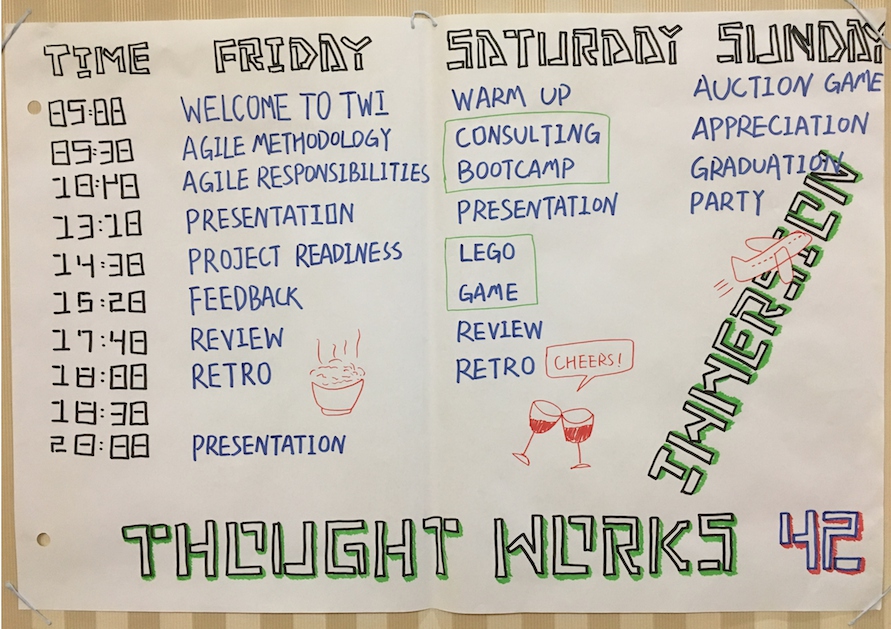 TIME FRIDAY SATURDAY SUNDAY
09:00 WELCOME TO TWI WARM UP AUCTION GAME
09:30 AGILE METHODOLOGY CONSULTING APPRECIATION
10:40 AGILE RESPONSIBILITIES BOOTCAMP GRADUATION
13:10 PRESENTATION PRESENTATION PARTY
14:30 PROJECT READINESS LEGO
15:20 FEEDBACK GAME
17:40 REVIEW REVIEW
18:00 RETRO RETRO CHEERS!
18:30
20:00 PRESENTATION
IMMERSION
THOUGHT WORKS 42